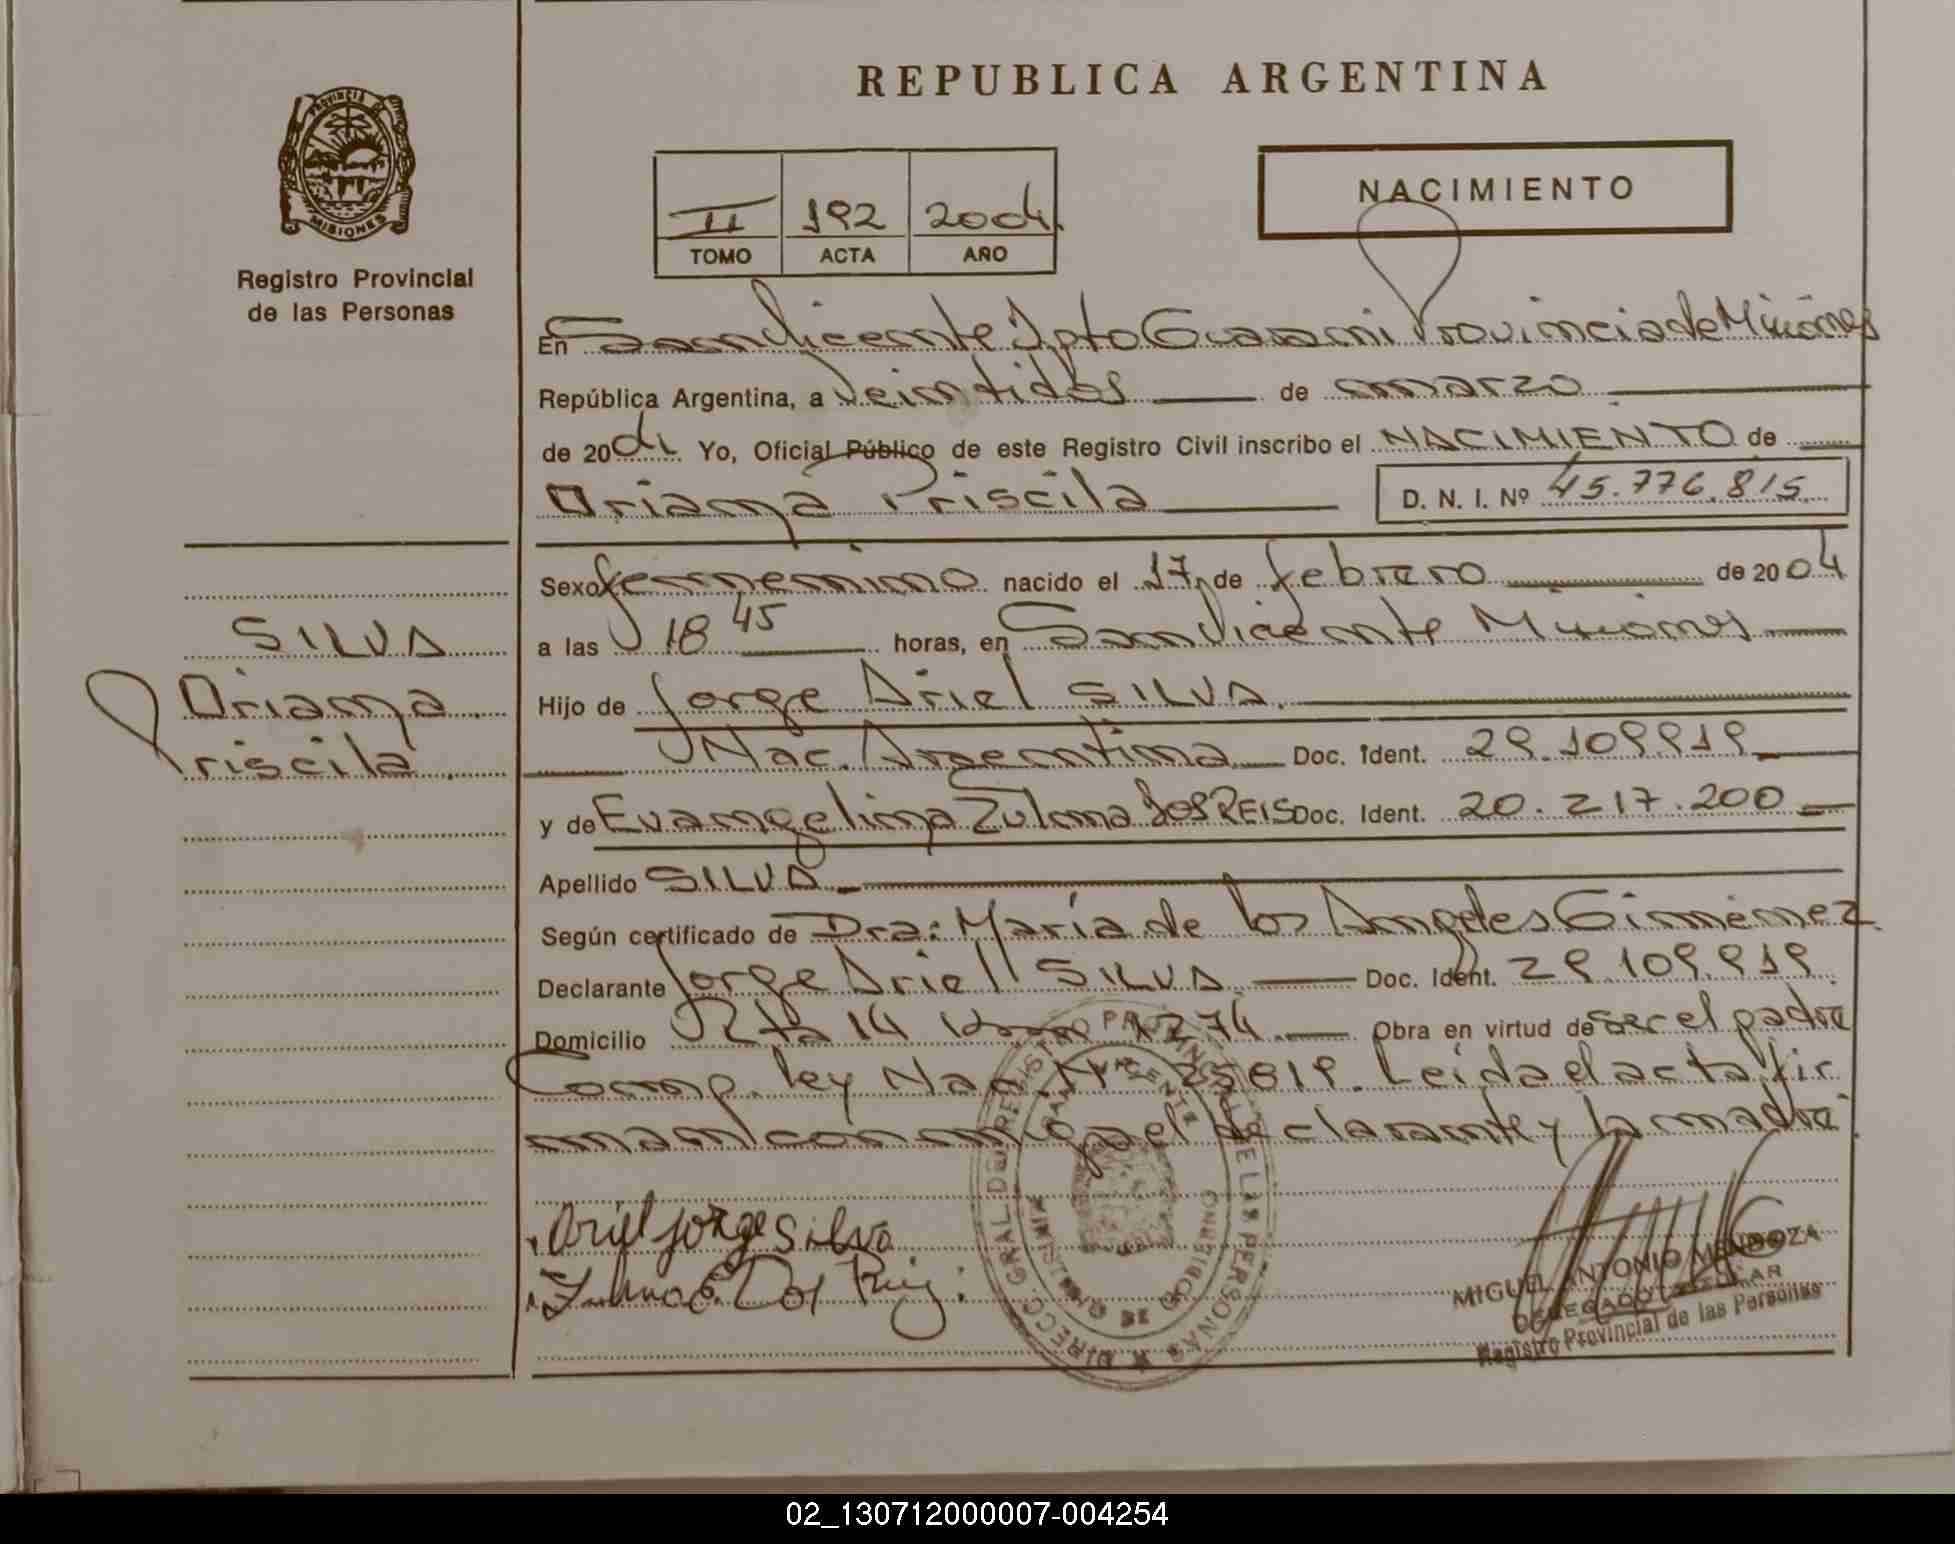 REPUBLICA ARGENTINA
PROVINCIA DE
MISIONES
Registro Provincial
de las Personas
II 192 2004
TOMO ACTA AÑO
NACIMIENTO
En San Vicente Dpto Guarani Provincia de Misiones
República Argentina, a Veintidos de marzo
de 2004 Yo, Oficial Público de este Registro Civil inscribo el NACIMIENTO de
Oriana Priscila D. N. I. Nº 45.776.815
Sexo femenino nacido el 17 de febrero de 2004
a las 18 45 horas, en San Vicente Misiones
Hijo de Jorge Ariel SILVA
Nac. Argentina Doc. Ident. 29.109.919
y de Evangelina Zulma Dos REIS Doc. Ident. 20.217.200
Apellido SILVA
Según certificado de Dra: María de los Angeles Giménez
Declarante Jorge Ariel SILVA Doc. Ident. 29 109.919
Domicilio Rta 14 1274 Obra en virtud de ser el padre
Comp. ley Nac. Nº 25819. Leida el acta fir
man conmigo el declarante y la madre
SILVA
Oriana
Priscila
Ariel Jorge Silva
DIRECC. GRAL DE REGISTRO PROVINCIAL DE LAS PERSONAS
SAN VICENTE
MIGUEL ANTONIO MENDOZA
DELEGADO TITULAR
Registro Provincial de las Personas
02_130712000007-004254